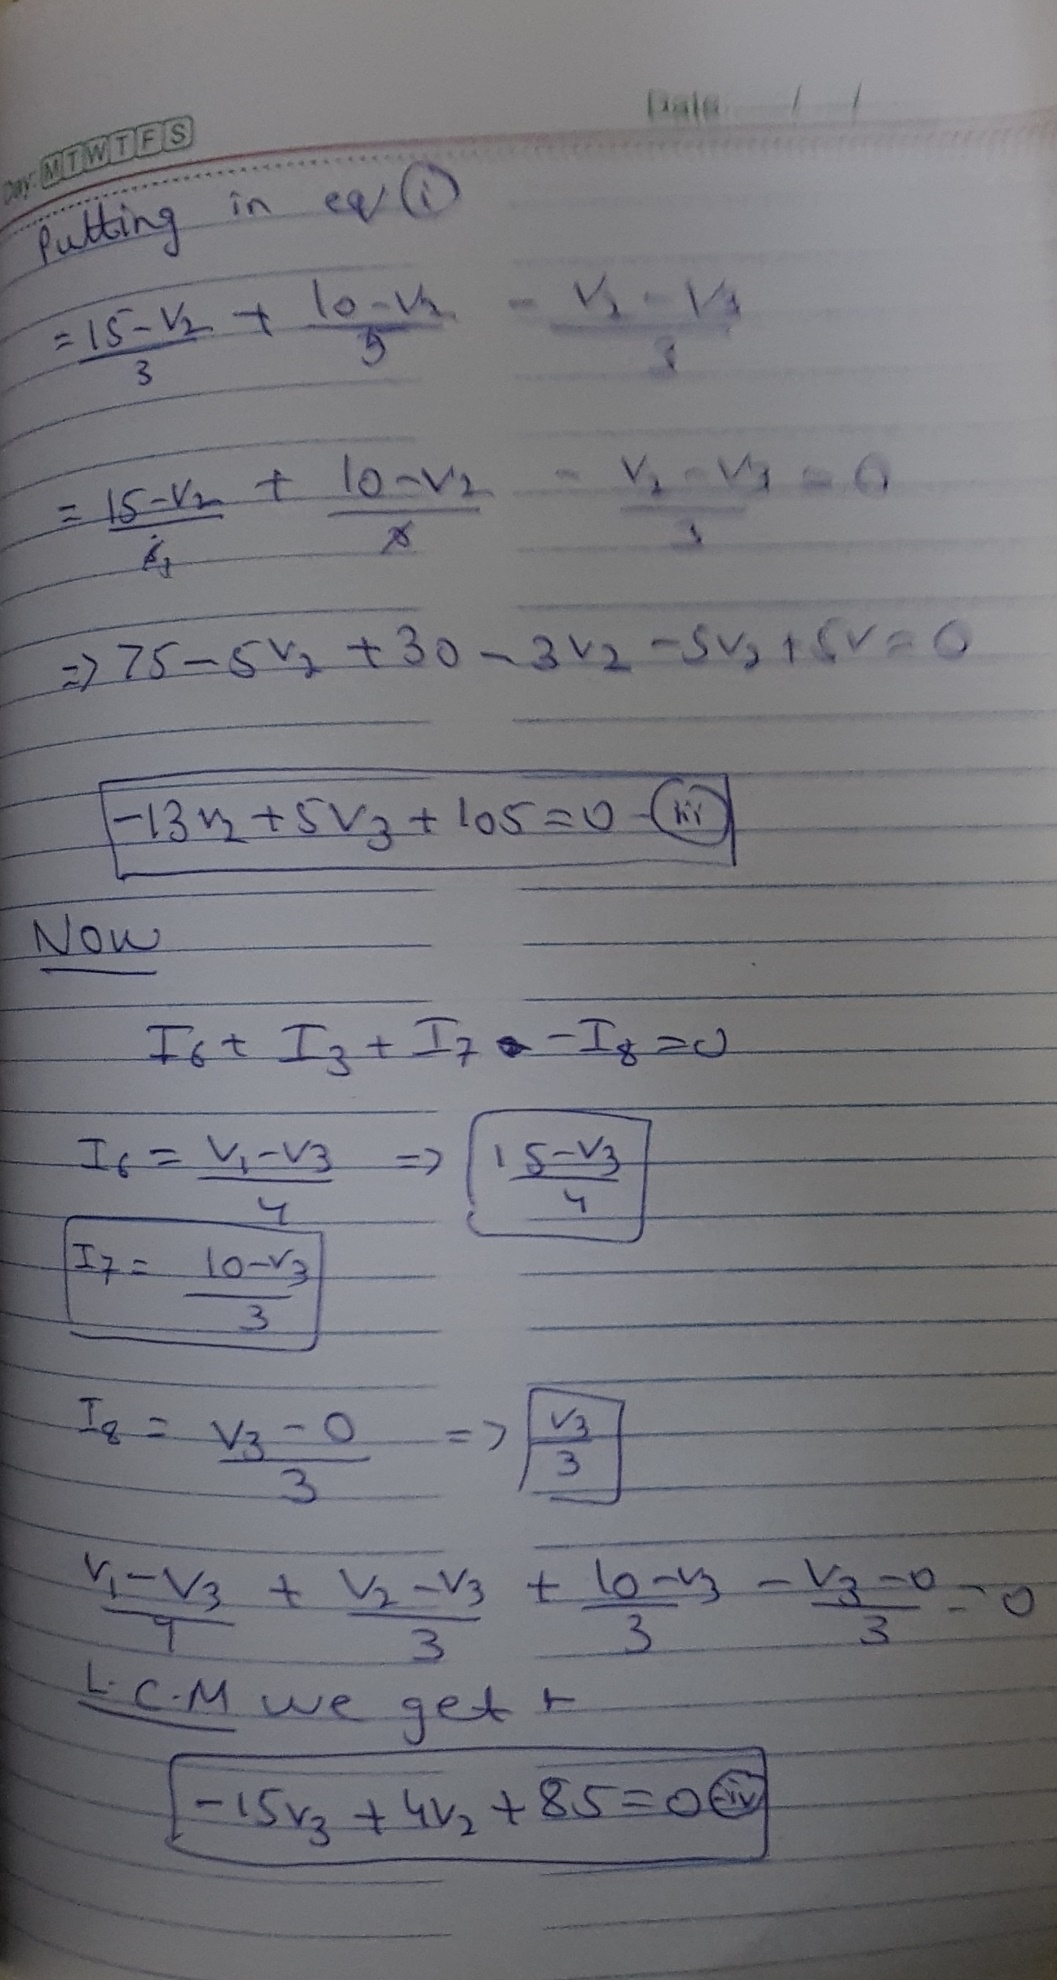 Date / /
Day: M T W T F S
Putting in eq (i)
= 15-V₂/3 + 10-V₂/5 - V₂-V₃/3
= 15-V₂/3 + 10-V₂/5 - V₂-V₃/3 = 0
=> 75-5V₂+30-3V₂-5V₂+5V=0
-13V₂+5V₃+105=0 -(iii)
Now
I₆+I₃+I₇-I₈=0
I₆ = V₁-V₃/4 => 15-V₃/4
I₇ = 10-V₃/3
I₈ = V₃-0/3 => V₃/3
V₁-V₃/4 + V₂-V₃/3 + 10-V₃/3 - V₃-0/3 = 0
L.C.M we get
-15V₃+4V₂+85=0 (iv)